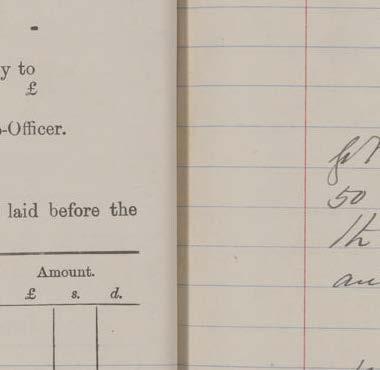 -
y to
£
-Officer.
laid before the
Amount.
£ s. d.
50